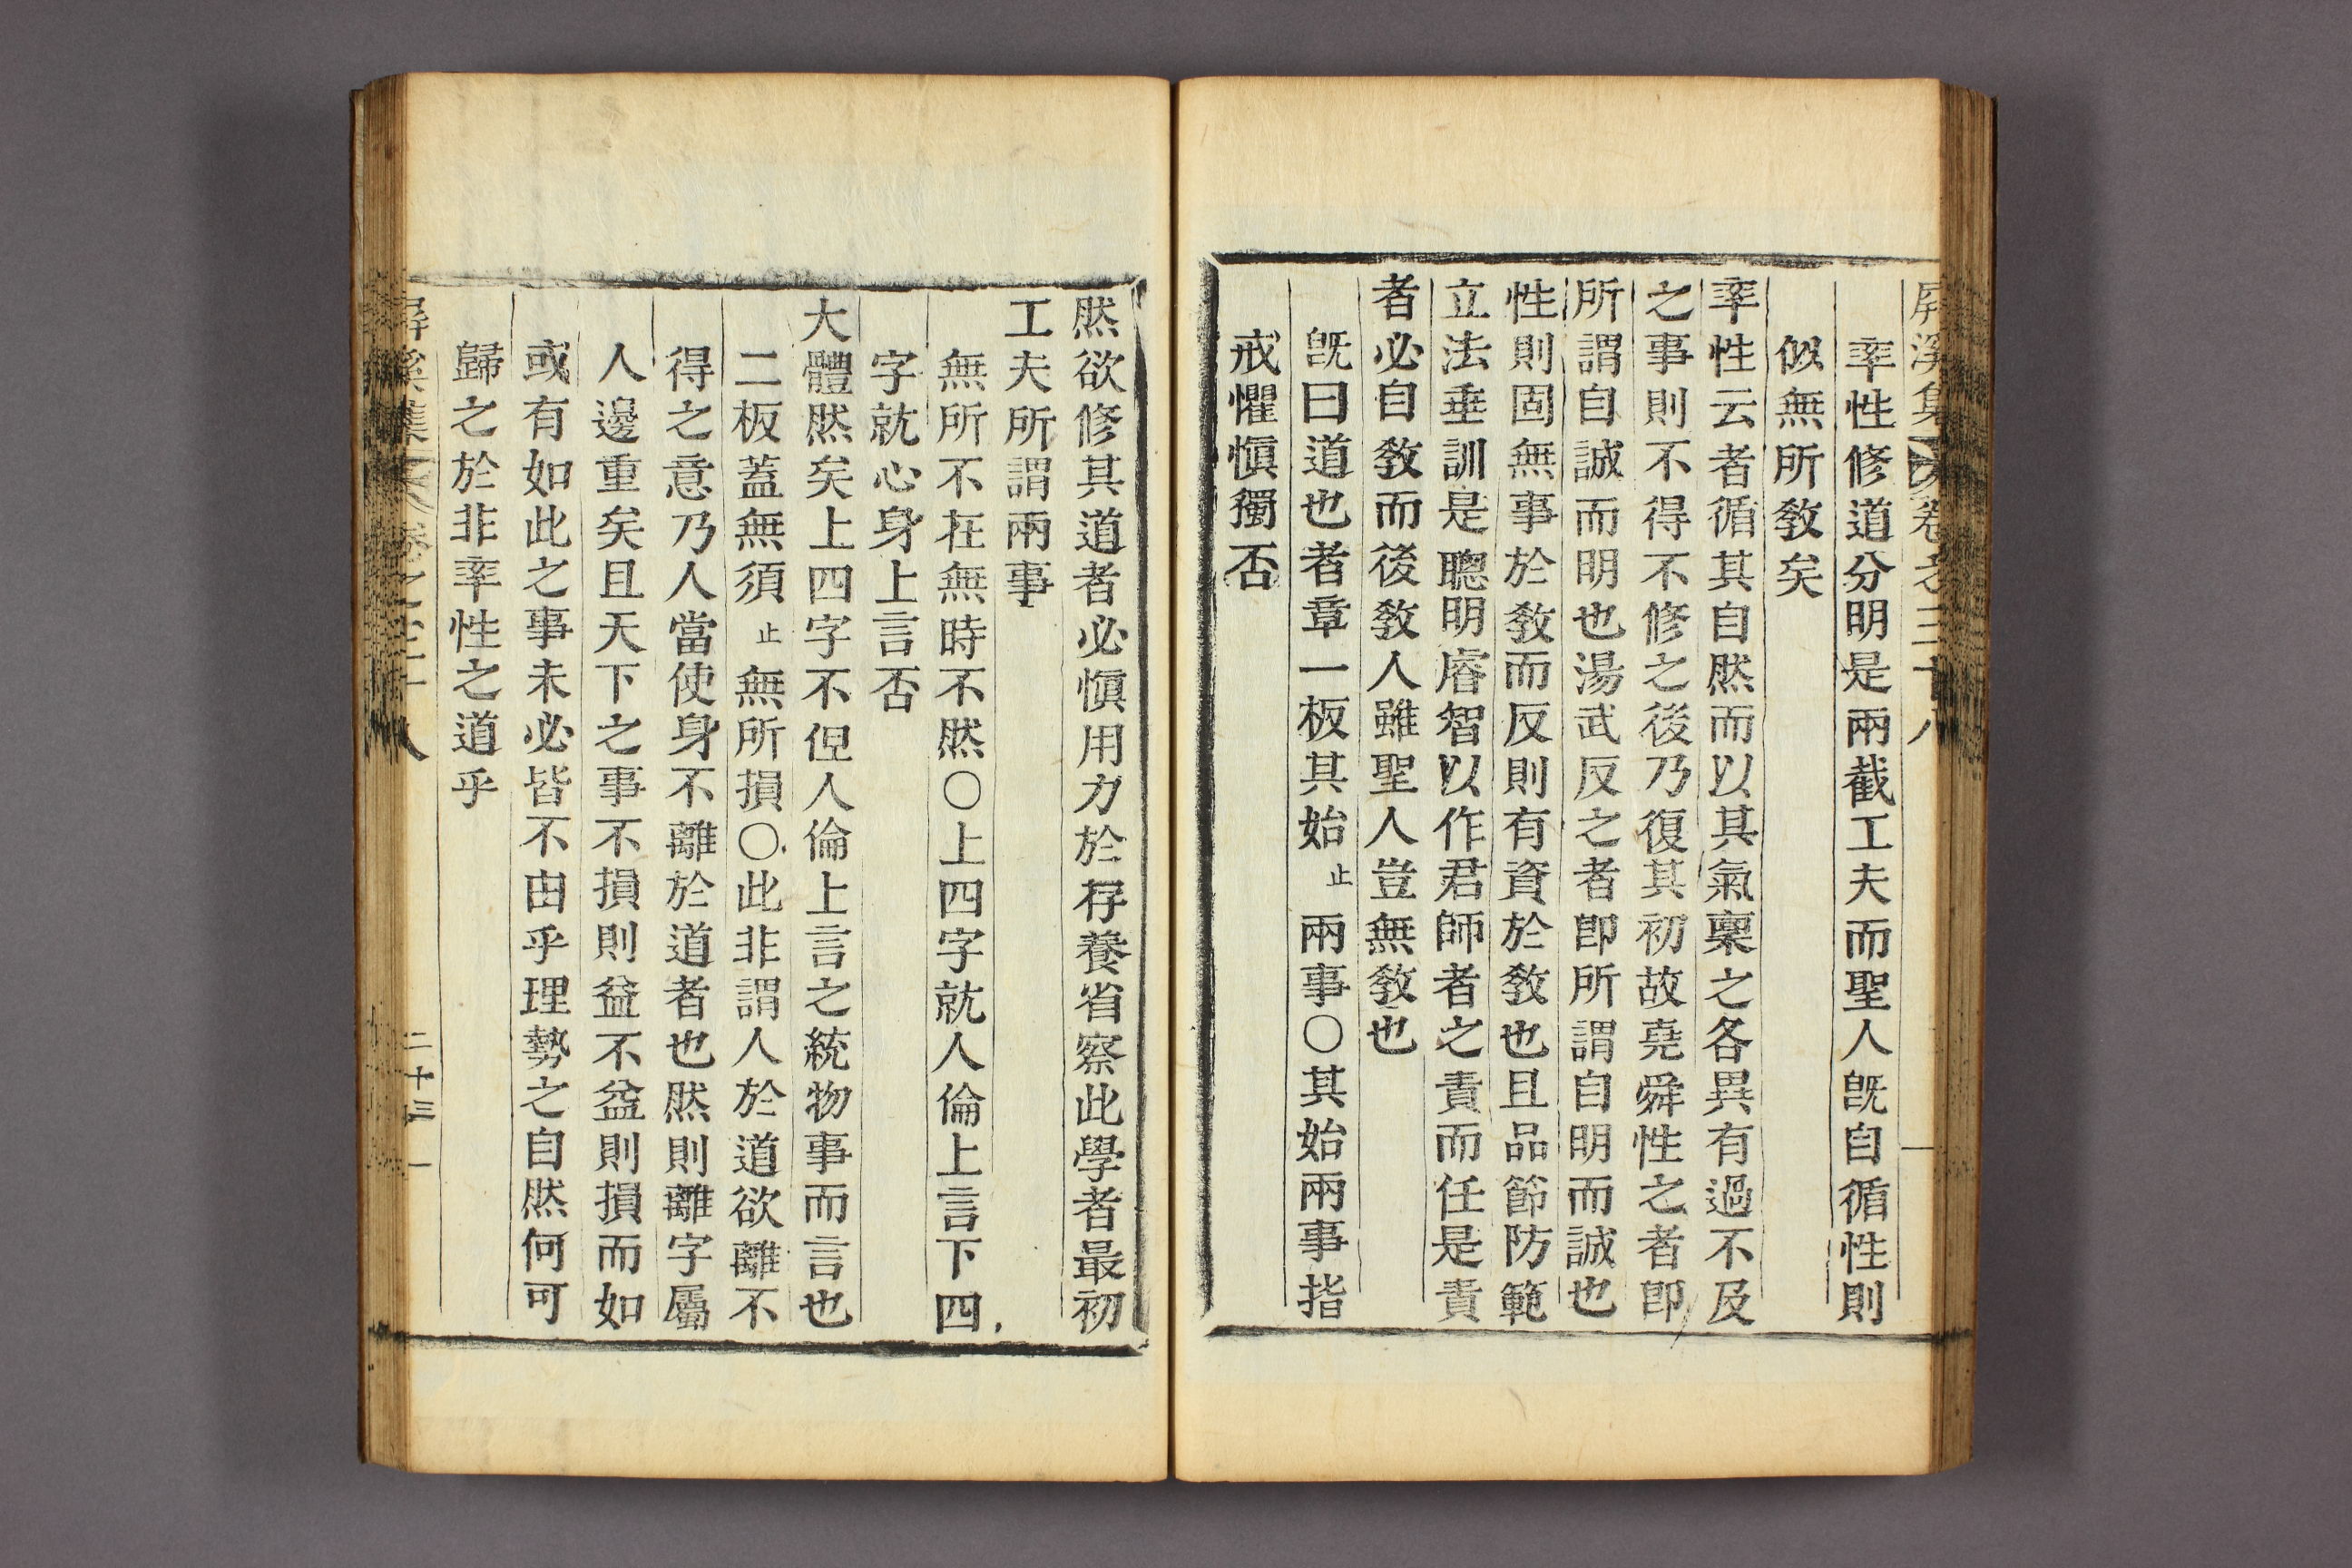 屛溪集 卷之三十八
率性修道分明是兩截工夫而聖人旣自循性則
似無所敎矣
率性云者循其自然而以其氣稟之各異有過不及
之事則不得不修之後乃復其初故堯舜性之者卽
所謂自誠而明也湯武反之者卽所謂自明而誠也
性則固無事於敎而反則有資於敎也且品節防範
立法垂訓是聰明睿智以作君師者之責而任是責
者必自敎而後敎人雖聖人豈無敎也
旣曰道也者章一板其始止兩事○其始兩事指
戒懼愼獨否
然欲修其道者必愼用力於存養省察此學者最初
工夫所謂兩事
無所不在無時不然○上四字就人倫上言下四
字就心身上言否
大體然矣上四字不但人倫上言之統物事而言也
二板蓋無須止無所損○此非謂人於道欲離不
得之意乃人當使身不離於道者也然則離字屬
人邊重矣且天下之事不損則益不益則損而如
或有如此之事未必皆不由乎理勢之自然何可
歸之於非率性之道乎
屛溪集 卷之三十八 二十三